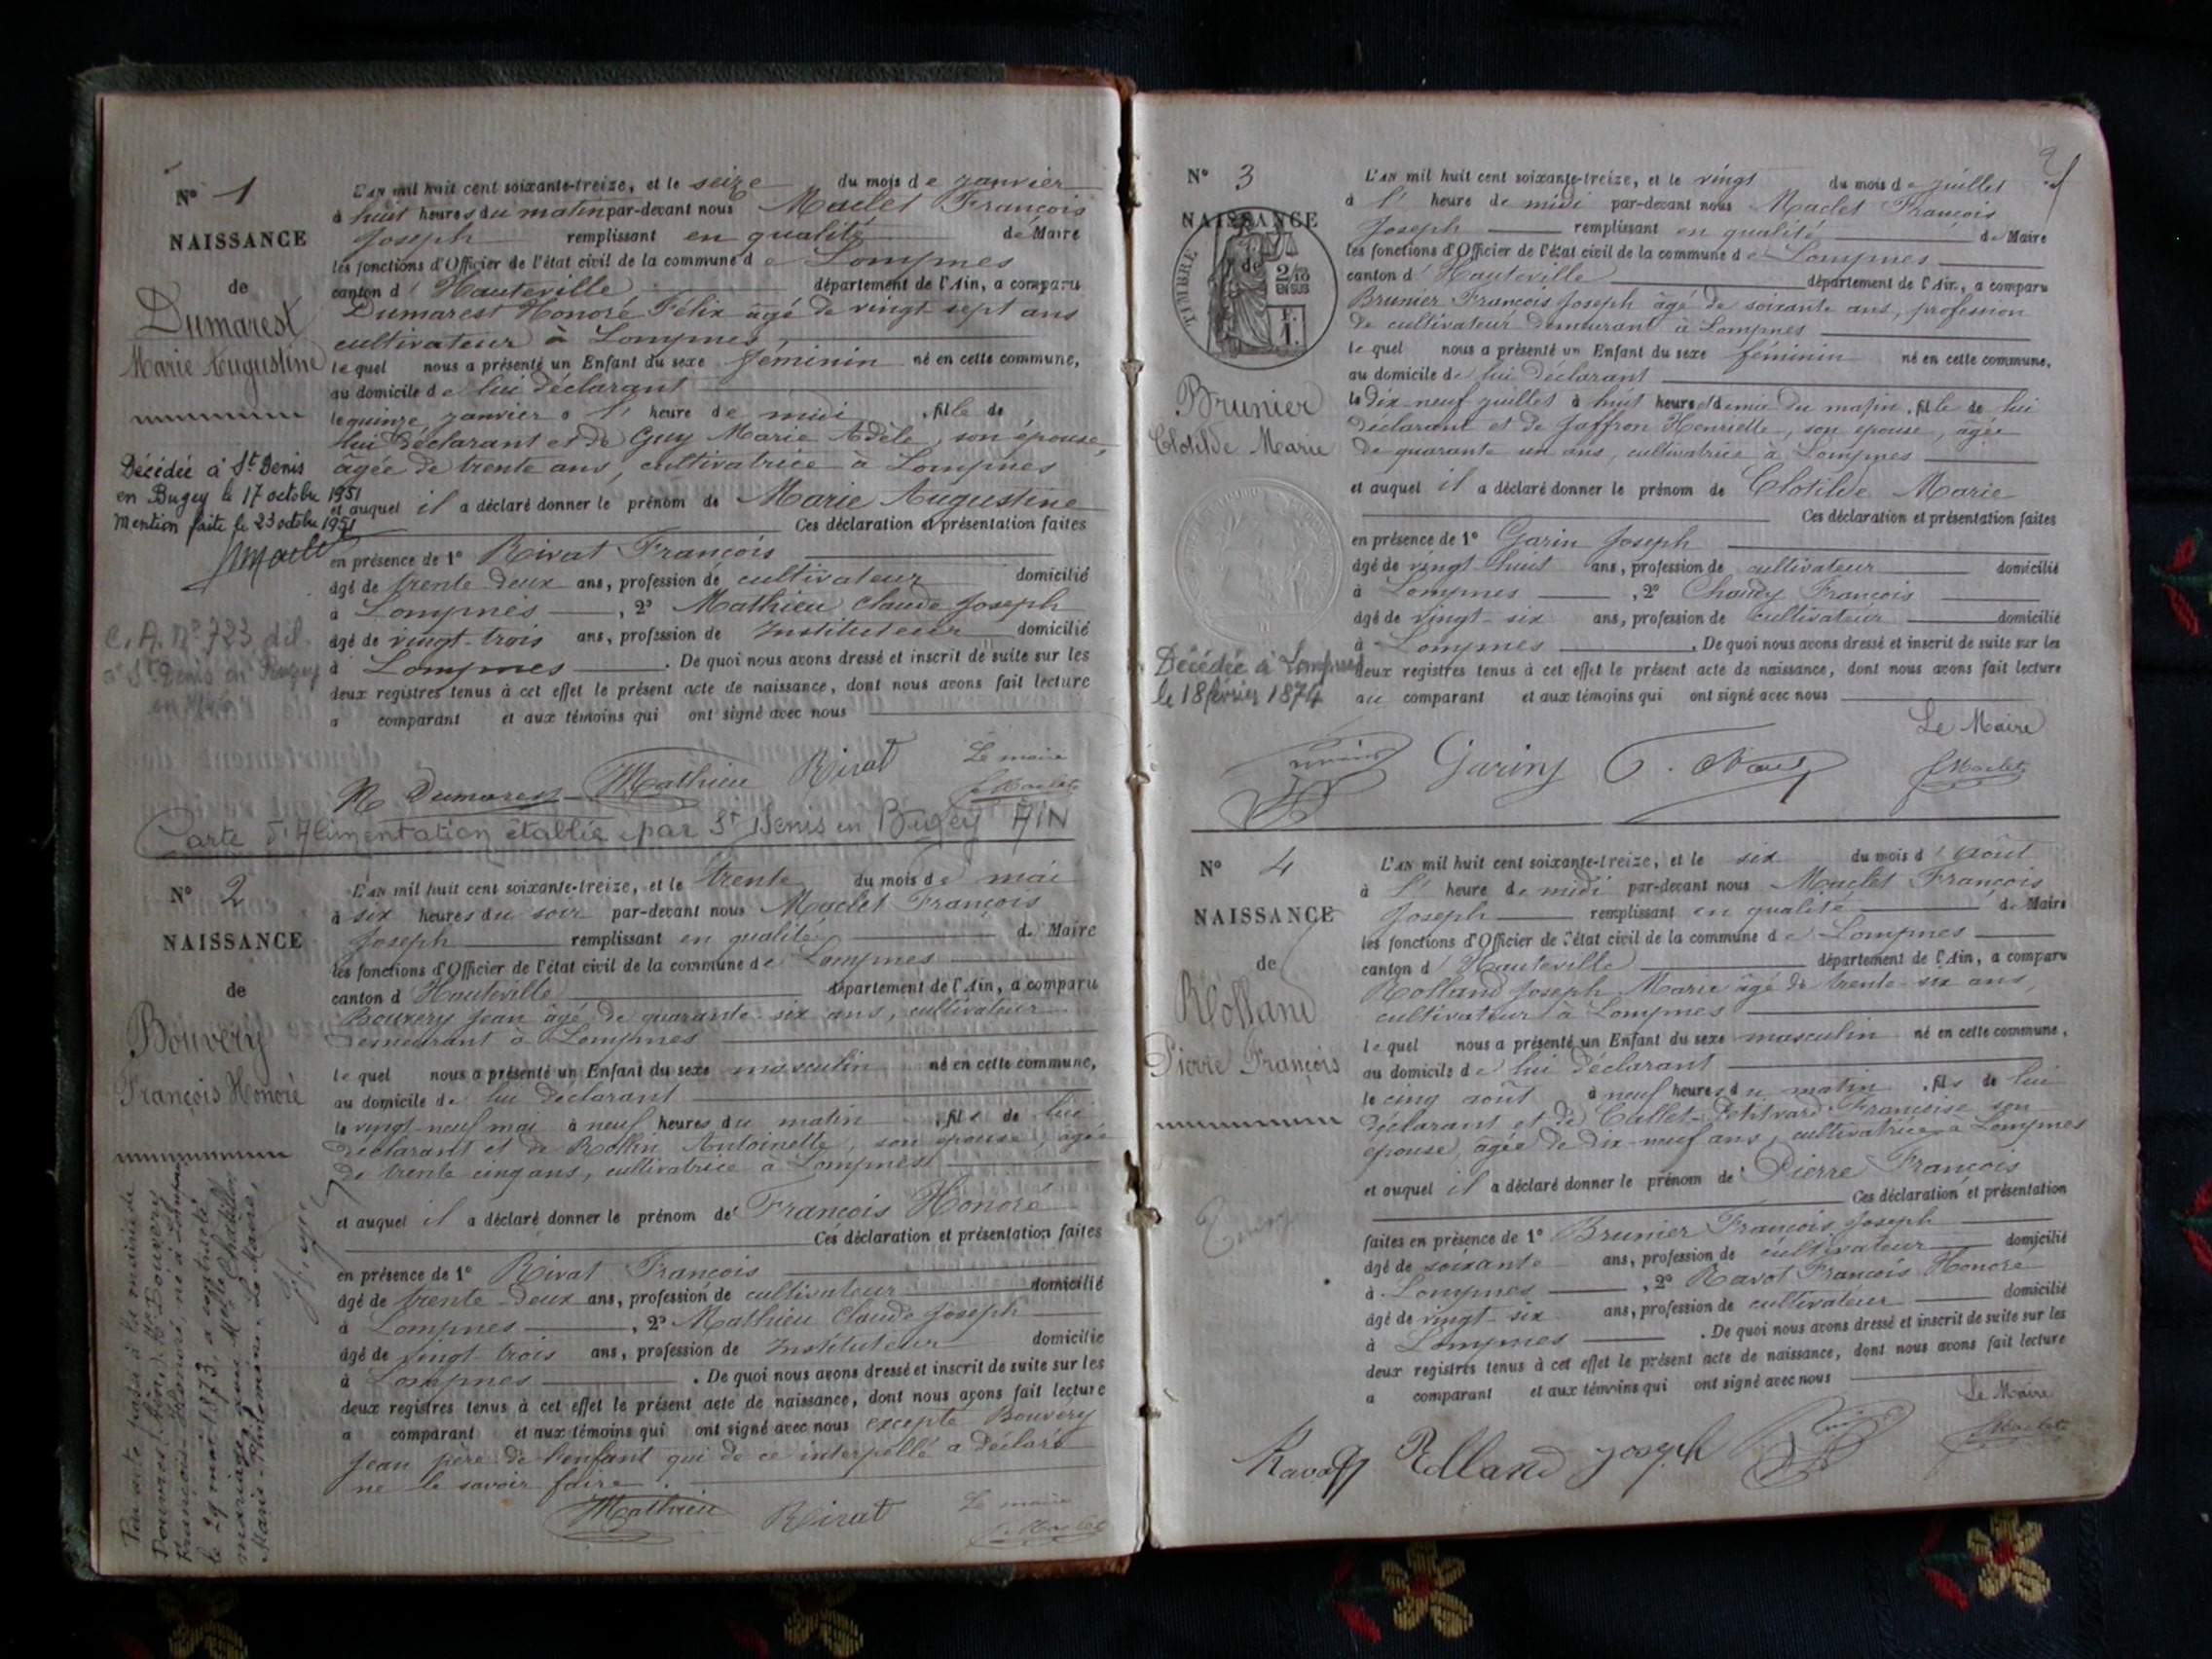 N° 1
NAISSANCE
de
Dumarest
Marie Augustine
Décédée à St Denis
en Bugey le 17 octobre 1951
Mention faite le 23 octobre 1951
C.A. N° 723 dél.
à St Denis en Bugey
L'AN mil huit cent soixante-treize, et le seize du mois de janvier
à huit heures du matin par-devant nous Maclet François
Joseph remplissant en qualité de Maire
les fonctions d'Officier de l'état civil de la commune de Lompnes
canton d'Hauteville département de l'Ain, a comparu
Dumarest Honoré Félix âgé de vingt sept ans
cultivateur à Lompnes
lequel nous a présenté un Enfant du sexe féminin né en cette commune,
au domicile de lui déclarant
le quinze janvier à l' heure de midi, fille de
lui déclarant et de Guy Marie Adèle, son épouse,
âgée de trente ans, cultivatrice à Lompnes
et auquel il a déclaré donner le prénom de Marie Augustine
Ces déclaration et présentation faites
en présence de 1° Rivat François
âgé de trente deux ans, profession de cultivateur domicilié
à Lompnes, 2° Mathieu Claude Joseph
âgé de vingt-trois ans, profession de Instituteur domicilié
à Lompnes. De quoi nous avons dressé et inscrit de suite sur les
deux registres tenus à cet effet le présent acte de naissance, dont nous avons fait lecture
a comparant et aux témoins qui ont signé avec nous
Le maire
H Dumarest Mathieu Rivat Maclet
Carte d'Alimentation établie par St Denis en Bugey AIN
N° 2
NAISSANCE
de
Bouvery
François Honoré
Par acte passé à la mairie de
Douvres (Ain), Mr Bouvery
François Honoré, né à Lompnes
le 29 mai 1873, a contracté
mariage avec Mlle Chatillon
Marie Philomène. Le Maire,
L'AN mil huit cent soixante-treize, et le trente du mois de mai
à six heures du soir par-devant nous Maclet François
Joseph remplissant en qualité de Maire
les fonctions d'Officier de l'état civil de la commune de Lompnes
canton d'Hauteville département de l'Ain, a comparu
Bouvery Jean âgé de quarante-six ans, cultivateur
demeurant à Lompnes
lequel nous a présenté un Enfant du sexe masculin né en cette commune,
au domicile de lui déclarant
le vingt-neuf mai à neuf heures du matin, fils de lui
déclarant et de Rollin Antoinette, son épouse, âgée
de trente cinq ans, cultivatrice à Lompnes
et auquel il a déclaré donner le prénom de François Honoré
Ces déclaration et présentation faites
en présence de 1° Rivat François
âgé de trente-deux ans, profession de cultivateur domicilié
à Lompnes, 2° Mathieu Claude Joseph
âgé de vingt-trois ans, profession de Instituteur domicilié
à Lompnes. De quoi nous avons dressé et inscrit de suite sur les
deux registres tenus à cet effet le présent acte de naissance, dont nous avons fait lecture
a comparant et aux témoins qui ont signé avec nous excepté Bouvery
Jean père de l'enfant qui de ce interpellé a déclaré
ne le savoir faire.
Le maire
Mathieu Rivat Maclet
N° 3
NAISSANCE
de
TIMBRE
2/10
EN SUS
1 F.
Brunier
Clotilde Marie
Décédée à Lompnes
le 18 février 1874
L'AN mil huit cent soixante-treize, et le vingt du mois de juillet
à l' heure de midi par-devant nous Maclet François
Joseph remplissant en qualité de Maire
les fonctions d'Officier de l'état civil de la commune de Lompnes
canton d'Hauteville département de l'Ain, a comparu
Brunier François Joseph âgé de soixante ans, profession
de cultivateur demeurant à Lompnes
lequel nous a présenté un Enfant du sexe féminin né en cette commune,
au domicile de lui déclarant
le dix-neuf juillet à huit heures et demie du matin, fille de lui
déclarant et de Jaffron Henriette, son épouse, âgée
de quarante un ans, cultivatrice à Lompnes
et auquel il a déclaré donner le prénom de Clotilde Marie
Ces déclaration et présentation faites
en présence de 1° Garin Joseph
âgé de vingt huit ans, profession de cultivateur domicilié
à Lompnes, 2° Chaudy François
âgé de vingt-six ans, profession de cultivateur domicilié
à Lompnes. De quoi nous avons dressé et inscrit de suite sur les
deux registres tenus à cet effet le présent acte de naissance, dont nous avons fait lecture
au comparant et aux témoins qui ont signé avec nous
Le Maire
Garin Maclet
N° 4
NAISSANCE
de
Rolland
Pierre François
L'AN mil huit cent soixante-treize, et le six du mois d'Août
à l' heure de midi par-devant nous Maclet François
Joseph remplissant en qualité de Maire
les fonctions d'Officier de l'état civil de la commune de Lompnes
canton d'Hauteville département de l'Ain, a comparu
Rolland Joseph Marie âgé de trente-six ans,
cultivateur à Lompnes
lequel nous a présenté un Enfant du sexe masculin né en cette commune,
au domicile de lui déclarant
le cinq août à neuf heures du matin, fils de lui
déclarant et de Callet Françoise son
épouse, âgée de dix-neuf ans, cultivatrice à Lompnes
et auquel il a déclaré donner le prénom de Pierre François
Ces déclaration et présentation
faites en présence de 1° Brunier François Joseph
âgé de soixante ans, profession de cultivateur domicilié
à Lompnes, 2° Ravot François Honoré
âgé de vingt-six ans, profession de cultivateur domicilié
à Lompnes. De quoi nous avons dressé et inscrit de suite sur les
deux registres tenus à cet effet le présent acte de naissance, dont nous avons fait lecture
a comparant et aux témoins qui ont signé avec nous
Le Maire
Ravot Rolland Joseph Maclet